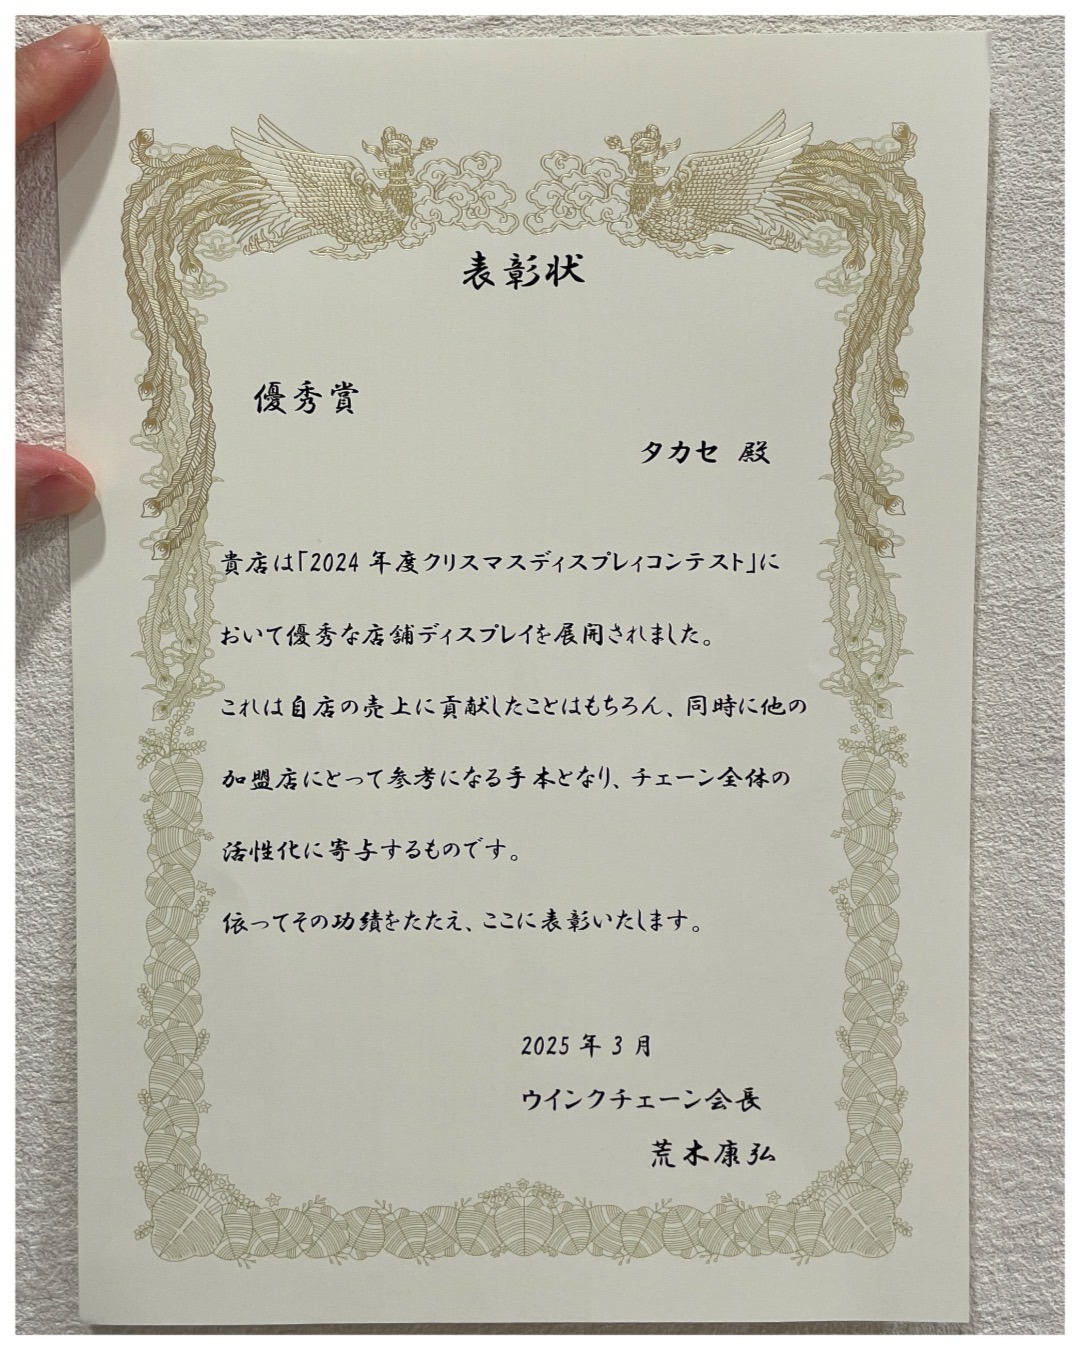 表彰状
優秀賞
タカセ 殿
貴店は「2024 年度クリスマスディスプレィコンテスト」に
おいて優秀な店舗ディスプレイを展開されました。
これは自店の売上に貢献したことはもちろん、同時に他の
加盟店にとって参考になる手本となり、チェーン全体の
活性化に寄与するものです。
依ってその功績をたたえ、ここに表彰いたします。
2025 年 3 月
ウインクチェーン会長
荒木康弘